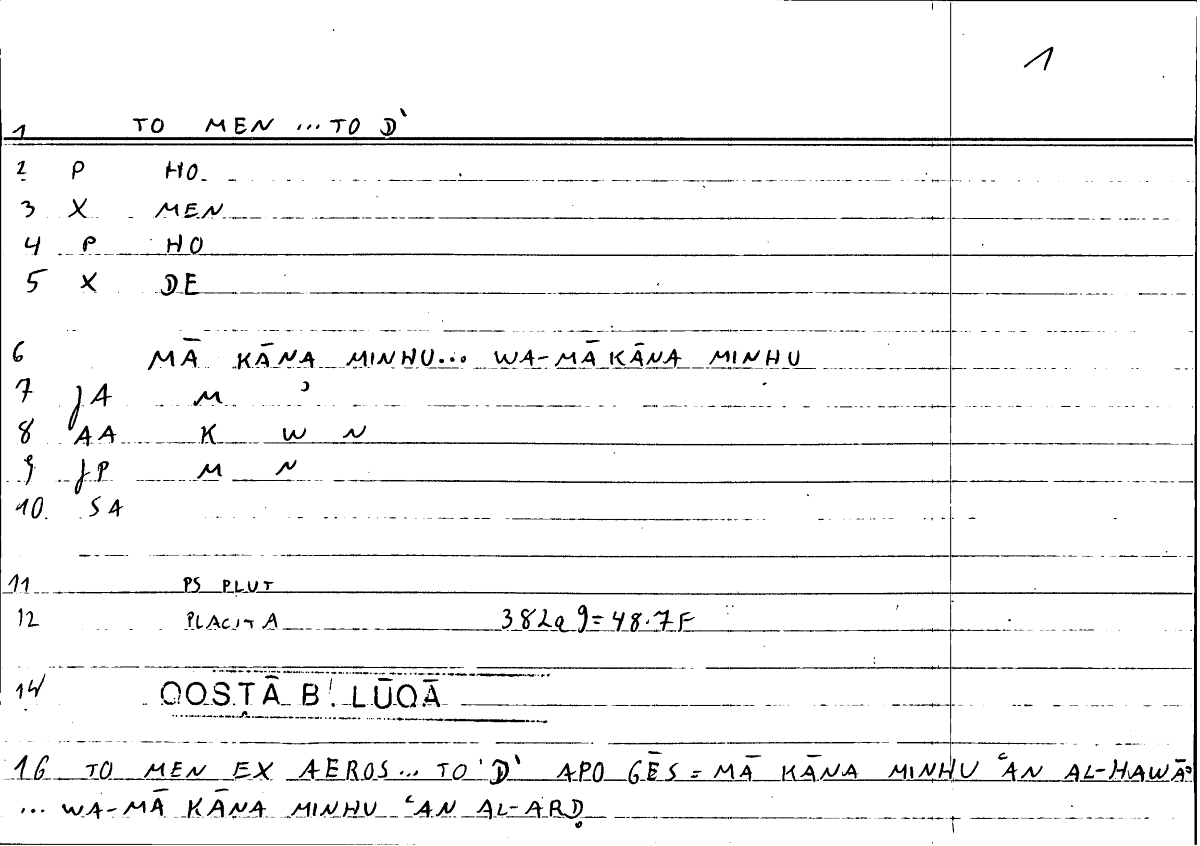 1
1 TO MEN ... TO D'
2 P HO
3 X MEN
4 P HO
5 X DE
6 MĀ KĀNA MINHU... WA-MĀ KĀNA MINHU
7 JA M ʾ
8 AA K W N
9 JP M N
10 SA
11 PS PLUT
12 PLACITA 382a9=48.7F
14 QOSṬĀ B. LŪQĀ
16 TO MEN EX AEROS... TO 'D' APO GĒS = MĀ KĀNA MINHU ʿAN AL-HAWĀʾ
... WA-MĀ KĀNA MINHU ʿAN AL-ARḌ